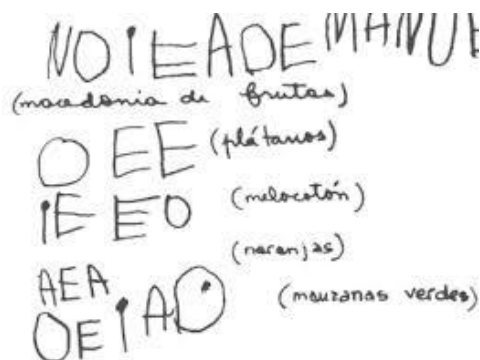 NOIEADE MANUE
(macedonia de frutas)
OEE (plátanos)
iEEO (melocotón)
(naranjas)
AEA
OEiAO (manzanas verdes)